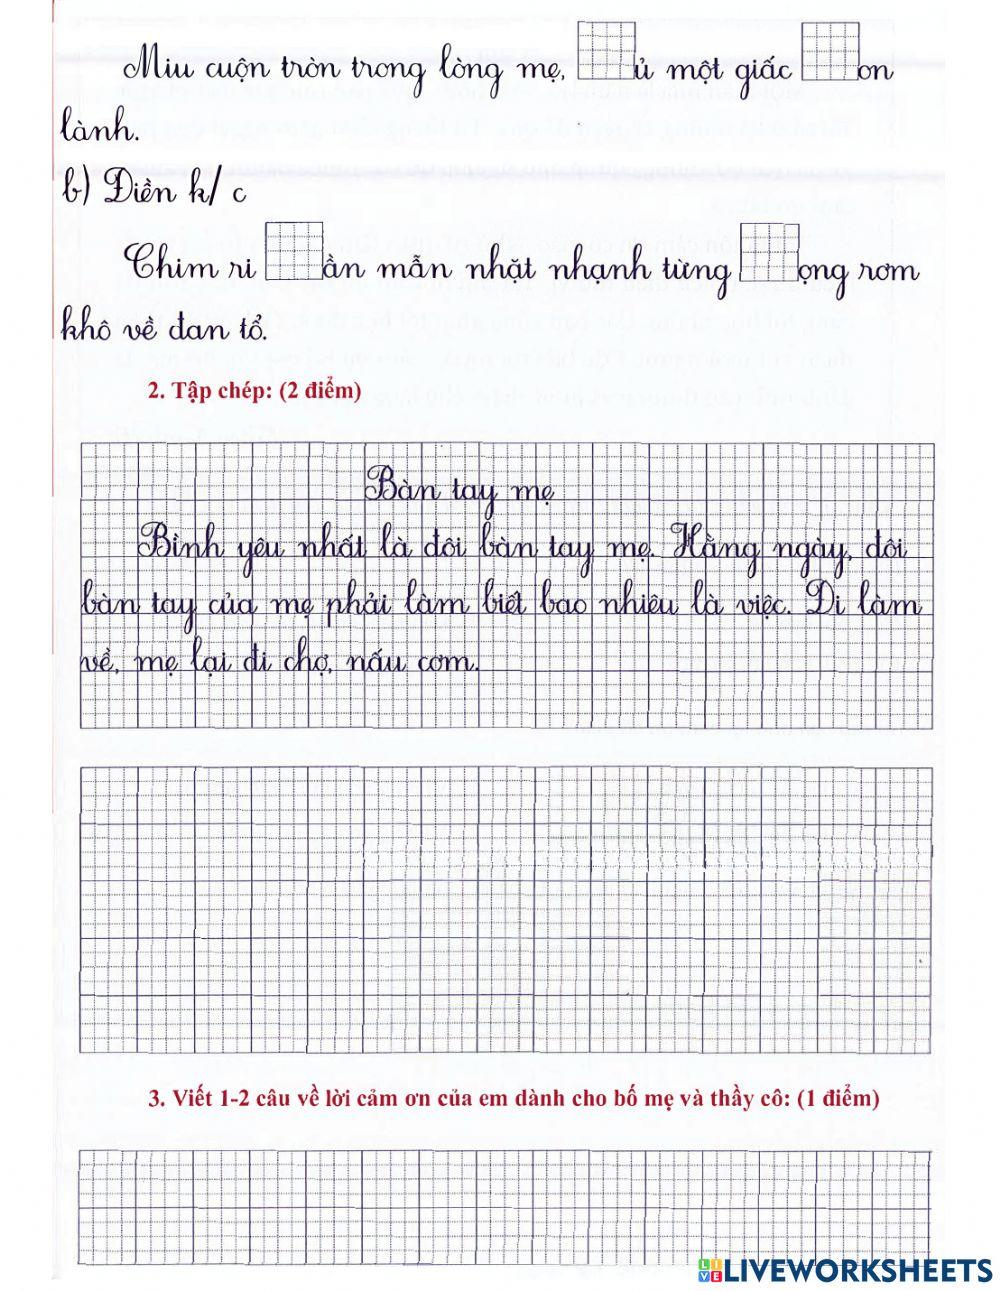 Miu cuộn tròn trong lòng mẹ, ủ một giấc on
lành.
b) Điền k/ c
Chim ri ần mẫn nhặt nhạnh từng ọng rơm
khô về đan tổ.
2. Tập chép: (2 điểm)
Bàn tay mẹ
Bình yêu nhất là đôi bàn tay mẹ. Hằng ngày, đôi
bàn tay của mẹ phải làm biết bao nhiêu là việc. Đi làm
về, mẹ lại đi chợ, nấu cơm.
3. Viết 1-2 câu về lời cảm ơn của em dành cho bố mẹ và thầy cô: (1 điểm)
LIVEWORKSHEETS